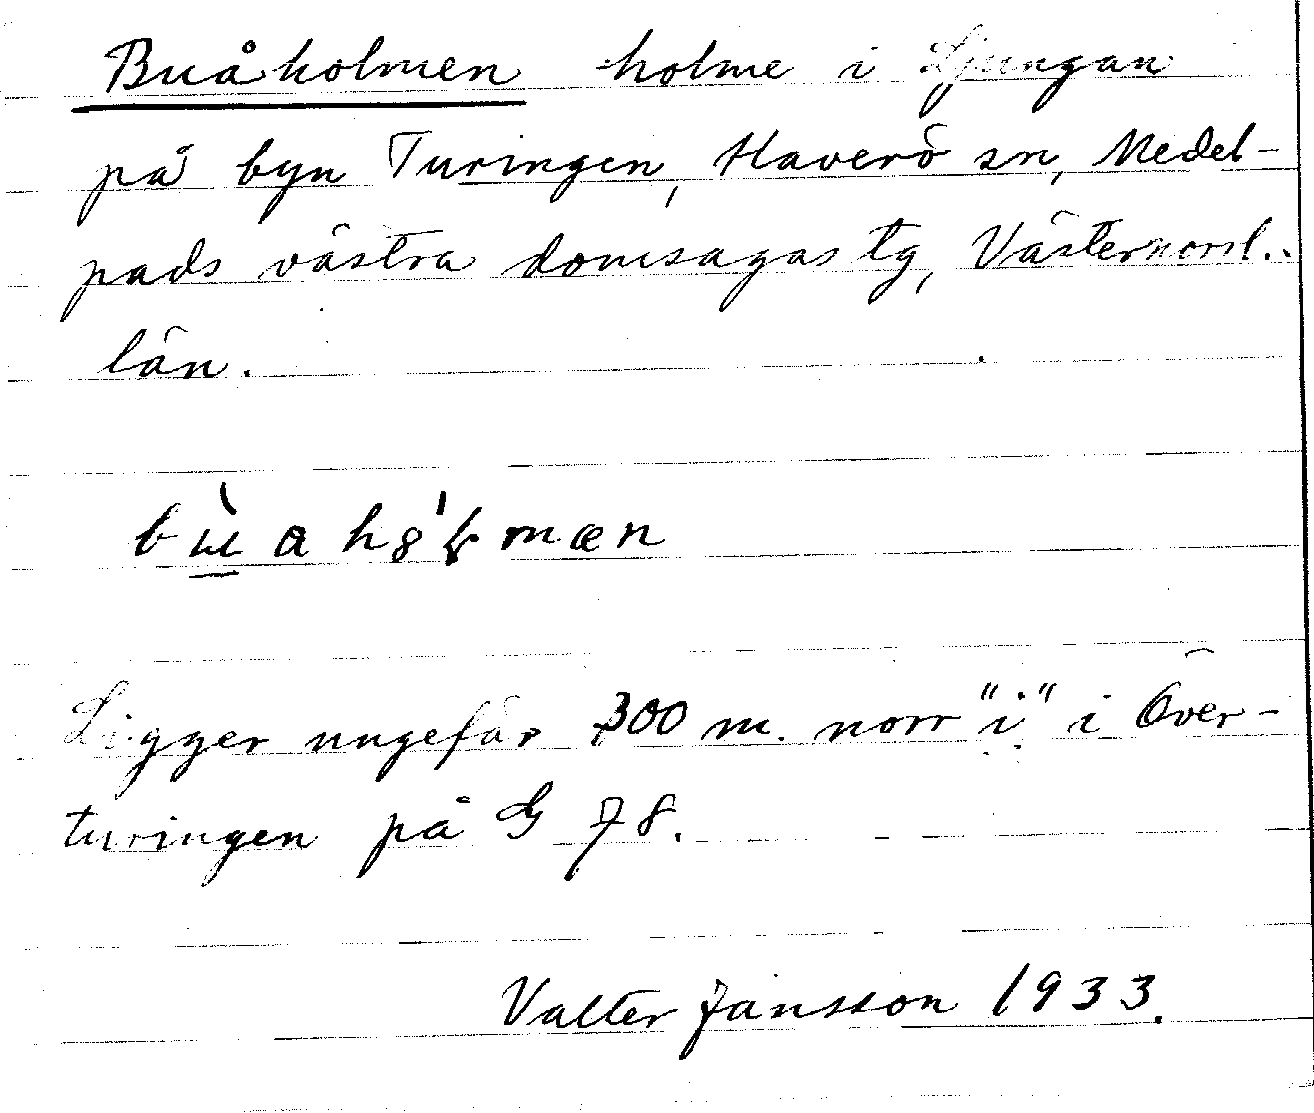 Buåholmen holme i Ljungan
på byn Turingen, Haverö sn, Medel-
pads västra domsagas tg, Västernorrl.
län.
Ligger ungefär 300 m. norr "i" i Över-
turingen på G 78.
Valter Jansson 1933.